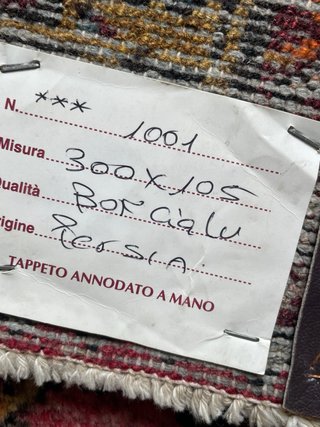 N. *** 1001
Misura 300x105
Qualità Borcialu
Origine Persia
TAPPETO ANNODATO A MANO